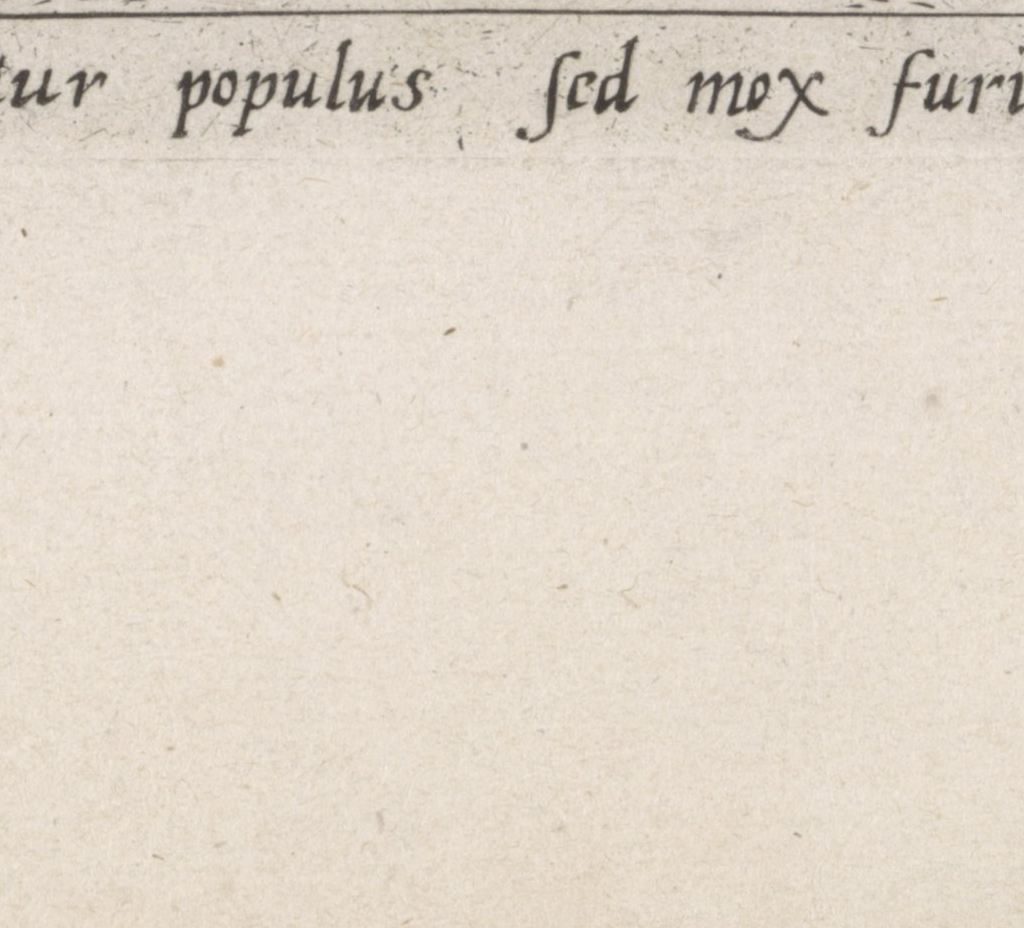 tur populus ſed mox furi